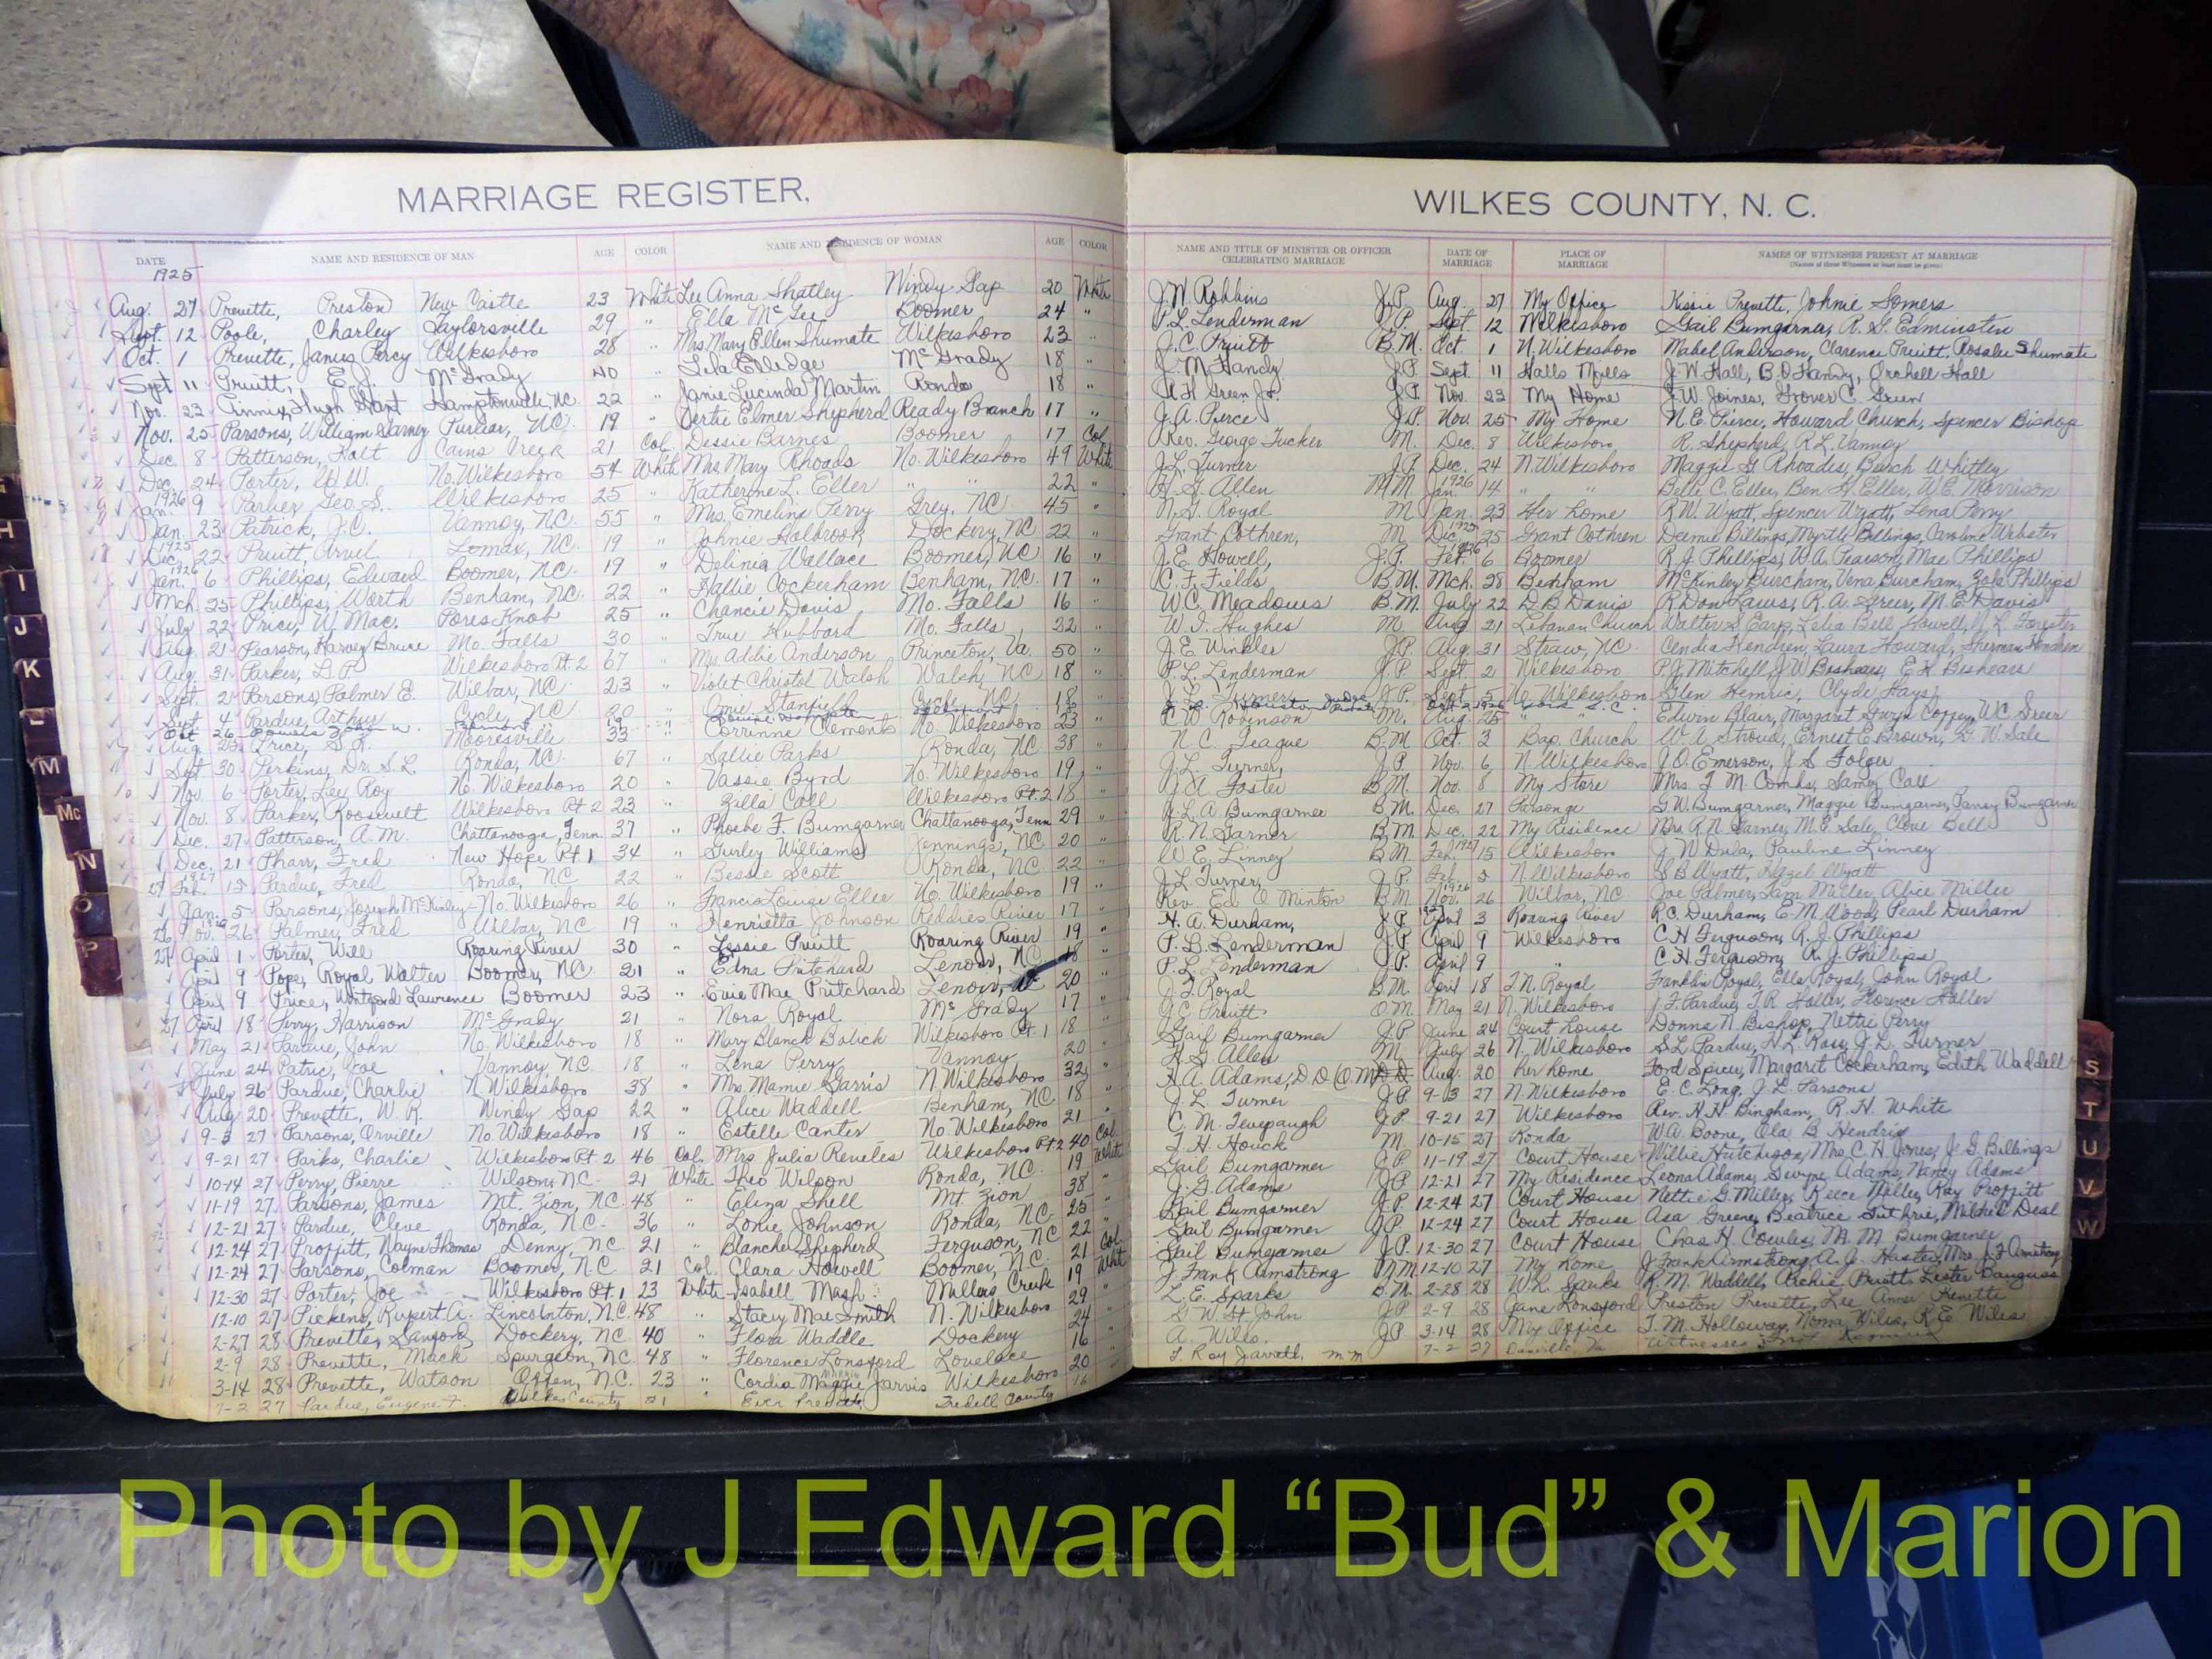 MARRIAGE REGISTER,
WILKES COUNTY, N. C.
DATE NAME AND RESIDENCE OF MAN AGE COLOR NAME AND RESIDENCE OF WOMAN AGE COLOR
NAME AND TITLE OF MINISTER OR OFFICER CELEBRATING MARRIAGE DATE OF MARRIAGE PLACE OF MARRIAGE NAMES OF WITNESSES PRESENT AT MARRIAGE
(Names of three Witnesses at least must be given)
1925
Aug. 27 Prevette, Preston New Castle 23 White Lee Anna Shatley Windy Gap 20 White
Sept. 12 Poole, Charley Taylorsville 29 " Ella McGee Boomer 24 "
Oct. 1 Prevette, James Percy Wilkesboro 28 " Mrs Mary Ellen Shumate Wilkesboro 23 "
Sept 11 Pruitt, E. J. McGrady 40 " Lela Elledge McGrady 18 "
Nov. 23 Pinnix, Hugh Hamptonville, NC 22 " Janie Lucinda Martin Ronda 18 "
Nov. 25 Parsons, William Purlear, NC. 19 " Vertie Elmer Shepherd Ready Branch 17 "
Dec. 8 Patterson, Holt Cains Creek 21 Col. Dessie Barnes Boomer 17 Col.
Dec. 24 Porter, W.W. No. Wilkesboro 54 White Mrs Mary Rhoads No. Wilkesboro 49 White
1926
Jan. 9 Parlier Geo. S. Wilkesboro 25 " Katherine L. Eller " " 22 "
Jan. 23 Patrick, J.C. Vannoy, NC. 55 " Mrs. Emeline Perry Grey, NC. 45 "
1925
Dec. 22 Pruitt, Arvel Lomax, NC. 19 " Johnie Holbrook Dockery, NC 22 "
1926
Jan. 6 Phillips, Edward Boomer, NC. 19 " Delinia Wallace Boomer, NC 16 "
Mch. 25 Phillips, Worth Benham, NC. 22 " Hallie Cockerham Benham, NC. 17 "
July 22 Price, W. Mac. Pores Knob 25 " Chancie Davis Mo. Falls 16 "
Aug. 21 Pearson, Harvey Bruce Mo. Falls 30 " True Hubbard Mo. Falls 32 "
Aug. 31 Parker, L.P. Wilkesboro Rt. 2 67 " Mrs Addie Anderson Princeton, Va. 50 "
Sept. 2 Parsons, Palmer E. Wilbar, NC 23 " Violet Christol Walsh Walsh, NC 18 "
Sept 4 Pardue, Arthur Cycle, NC 20 " Omie Stanfield Cycle, NC 18 "
Oct 26
Aug. 25 Price, Mooresville 33 " Corrinne Clements No. Wilkesboro 23 "
Sept. 30 Perkins, Dr. S.L. Ronda, NC. 67 " Sallie Parks Ronda, NC 38 "
Nov. 6 Porter, Lee Roy N. Wilkesboro 20 " Vassie Byrd No. Wilkesboro 19 "
Nov. 8 Parker, Roosevelt Wilkesboro Rt 2 23 " Zilla Call Wilkesboro Rt. 2 18 "
Dec. 27 Patterson, A.M. Chattanooga, Tenn. 37 " Phoebe F. Bumgarner Chattanooga, Tenn 29 "
Dec. 21 Pharr, Fred New Hope Rt. 1 34 " Gurley Williams Jennings, NC 20 "
1927
Feb. 12 Pardue, Fred Ronda, NC 22 " Bessie Scott Ronda, NC 22 "
Jan. 5 Parsons, Joseph McKinley No. Wilkesboro 26 " Francis Louise Eller N. Wilkesboro 19 "
Nov. 26 Palmer, Fred Wilbar, NC 19 " Henrietta Johnson Reddies River 17 "
27 April 1 Porter, Will Roaring River 30 " Lessie Pruitt Roaring River 19 "
April 9 Pope, Royal Walter Boomer, NC. 21 " Edna Pritchard Lenoir, NC 18 "
April 9 Price, Lawrence Boomer 23 " Evie Mae Pritchard Lenoir, NC 20 "
27 April 18 Perry, Harrison McGrady 21 " Nora Royal McGrady 17 "
May 21 Pardue, John No. Wilkesboro 18 " Mary Blanch Wilkesboro Rt. 1 18 "
June 24 Patric, Joe Vannoy, N.C. 18 " Lena Perry Vannoy 20 "
July 26 Pardue, Charlie N Wilkesboro 38 " Mrs. Mamie Harris N. Wilkesboro 32 "
Aug 20 Prevette, W.R. Windy Gap 22 " Alice Waddell Benham, NC 18 "
9-3 27 Parsons, Orville No. Wilkesboro 18 " Estelle Canter No. Wilkesboro 21 "
9-21 27 Parks, Charlie Wilkesboro Rt. 2 46 Col. Mrs Julia Reveles Wilkesboro Rt 2 40 Col.
10-14 27 Perry, Pierre Wilson, N.C. 21 White Theo Wilson Ronda, NC. 19 White
11-19 27 Parsons, James Mt. Zion, N.C. 48 " Eliza Shell Mt. Zion 38 "
12-21 27 Pardue, Cleve Ronda, N.C. 36 " Lonie Johnson Ronda, N.C. 25 "
12-24 27 Proffitt, Wayne Thomas Denny, N.C. 21 " Blanche Shepherd Ferguson, NC 22 "
12-24 27 Parsons, Colman Boomer, N.C. 21 Col. Clara Howell Boomer, N.C. 21 Col.
12-30 27 Porter, Joe Wilkesboro Rt. 1 23 White Isabell Mash Millers Creek 19 Whit
12-10 27 Pickens, Rupert A. Lincolnton, N.C. 48 " Stacy Mae Smith N. Wilkesboro 29
2-27 28 Prevette, Sanford Dockery, NC 40 " Flora Waddle Dockery 24
2-9 28 Prevette, Mack Spurgeon, N.C. 48 " Florence Lonsford Lovelace 16
3-14 28 Prevette, Watson Offen, N.C. 23 " Cordia Maggie Jarvis Wilkesboro 20
7-2 27 Pardue, Eugene F. Wilkes County 21 Prevette, Iredell County 16
J.W. Robbins J.P. Aug. 27 My Office Kissie Prevette, Johnie Somers
P.L. Lenderman J.P. Sept. 12 Wilkesboro Gail Bumgarner, R. G. Edminsten
J.C. Pruitt B.M. Oct. 1 N. Wilkesboro Mabel Anderson, Clarence Pruitt, Rosalee Shumate
J. M. Handy J.P. Sept. 11 Halls Mills J.W. Hall, B.O Handy, Orchell Hall
A.H. Green Jr. J.P. Nov. 23 My Home J.W. Joines, Grover C. Green
J.A. Pierce J.P. Nov. 25 My Home N.E. Pierce, Howard Church, Spencer Bishop
Rev. George Tucker M. Dec. 8 Wilkesboro R. Shepherd, R.L. Vannoy
J.L. Turner J.P. Dec. 24 N. Wilkesboro Maggie G. Rhoades, Burch Whitley
H. G. Allen M.M. 1926 Jan. 14 " " Belle C. Eller, Ben H. Eller, W.E. Morrison
N.G. Royal M Jan. 23 Her home R.W. Wyatt, Spencer Wyatt, Lena Perry
Grant Cothren, M 1925 Dec. 25 Grant Cothren Deemie Billings, Myrtle Billings, Caroline Webster
J.E. Howell, J.P. 1926 Feb. 6 Boomer R.J. Phillips, W.A. Pearson, Mae Phillips
C.F. Fields B.M. Mch. 28 Benham McKinley Burcham, Vena Burcham, Zola Phillips
W.C. Meadows B.M. July 22 D.B. Davis R. Don Laws, R.A. Greer, M.E. Davis
W.I. Hughes M. Aug 21 Lebanan Church Walter S Earp, Lelia Bell Howell, Forester
J.E. Winkler J.P. Aug. 31 Straw, NC. Cendia Hendren, Laura Howard, Sherman Hendren
P.L. Lenderman J.P. Sept. 2 Wilkesboro P.J. Mitchell, J.W. Boshears, E.R. Boshears
J.L. Turner J.P. Sept. 5 N. Wilkesboro Glen Hemric, Clyde Hays
C.W. Robinson M. Aug. 25 " " Edwin Blair, Margaret Gwyn Coffey, W.C. Greer
N.C. Teague B.M. Oct. 3 Bap. Church W.A. Stroud, Ernest E Brown, G.W. Sale
J.L. Turner, J.P. Nov. 6 N. Wilkesboro J.O. Emerson, J.S. Folger
A. Foster B.M. Nov. 8 My Store Mrs. T.M. Combs, James Call
J.L.A Bumgarner B.M. Dec. 27 Parsonge G.W. Bumgarner, Maggie Bumgarner, Pansy Bumgarner
R.N. Garner B.M. Dec. 22 My Residence Mrs R.N. Garner, M.E. Sale, Cleve Bell
W.E. Linney B.M. Feb. 1927 15 Wilkesboro J.W. Dula, Pauline Linney
J.L. Turner, J.P. Feb. 5 N. Wilkesboro S.B. Wyatt, Hazel Wyatt
Rev. Ed O Minton B.M. 1926 Nov. 26 Wilbar, NC Joe Palmer, Sam Miller, Alice Miller
H.A. Durham, J.P. 1927 April 3 Roaring River R.C. Durham, E.M. Wood, Pearl Durham
P.L. Lenderman J.P. April 9 Wilkesboro C.H. Ferguson, R.J. Phillips
P.L. Lenderman J.P. April 9 " C.H. Ferguson, R.J. Phillips
J.F. Royal B.M. April 18 J.N. Royal Franklin Royal, Ella Royal, John Royal
J.C. Pruitt O.M. May 21 N. Wilkesboro J.F. Pardue, T.R. Haller, Florence Haller
Gail Bumgarner J.P. June 24 Court House Donna N. Bishop, Nettie Perry
H.G. Allen M. July 26 N. Wilkesboro S.L. Pardue, H.L. Ray, J.L. Turner
H.A. Adams, D.D. Aug. 20 her home Ford Spicer, Margaret Cockerham, Edith Waddell
J.L. Turner J.P. 9-3 27 N. Wilkesboro E.C. Long, J.L. Parsons
C.M. Tevepaugh J.P. 9-21 27 Wilkesboro Rev. H.H. Bingham, R.H. White
T.H. Houck M. 10-15 27 Ronda W.A. Boone, Ola B. Hendrix
Gail Bumgarner J.P. 11-19 27 Court House Willie Hutchison, Mrs. C.H. Jones, J.G. Billings
J.G. Adams J.P. 12-21 27 My Residence Leona Adams, Dwyne Adams, Nancy Adams
Gail Bumgarner J.P. 12-24 27 Court House Nettie G. Miller, Reece Miller, Ray Proffitt
Gail Bumgarner J.P. 12-24 27 Court House Asa Greene, Beatrice Guthrie, Mildred Deal
Gail Bumgarner J.P. 12-30 27 Court House Chas H. Cowles, M.M. Bumgarner
J. Frank Armstrong M.M. 12-10 27 My Home J Frank Armstrong, A.G. Hastin, Mrs J.F Armstrong
Z.E. Sparks B.M. 2-28 28 W.R. Sparks R.M. Waddell, Archie Pruitt, Lester Bauguss
G.W. St. John J.P. 2-9 28 Jane Lonsford Preston Prevette, Lee Anna Prevette
A. Wills. J.P. 3-14 28 My Office T.M. Holloway, Noma Wiles, R.E. Wiles
F. Ray Jarratt, M.M. 7-2 27 Danville, Va Witnesses not Required
H
I
J
K
L
M
Mc
N
O
P
S
T
U
V
W
Photo by J Edward “Bud” & Marion